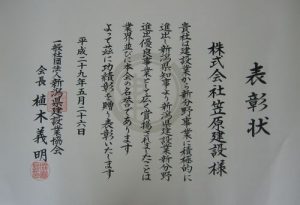 表彰状
株式会社笠原建設様
貴社は建設業から新分野事業に積極的に
進出し新潟県知事より新潟県建設業新分野
進出優良事業として広く賞揚されましたことは
業界並びに本会の名誉であります
よって茲に功績彰を贈り表彰いたします
平成二十九年五月二十六日
一般社団法人新潟県建設業協会
会長 植木義明